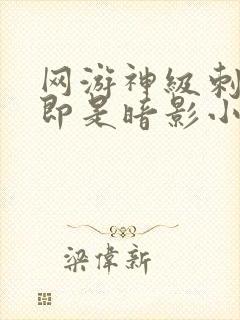 网游神级刺
即是暗影小
梁偉新